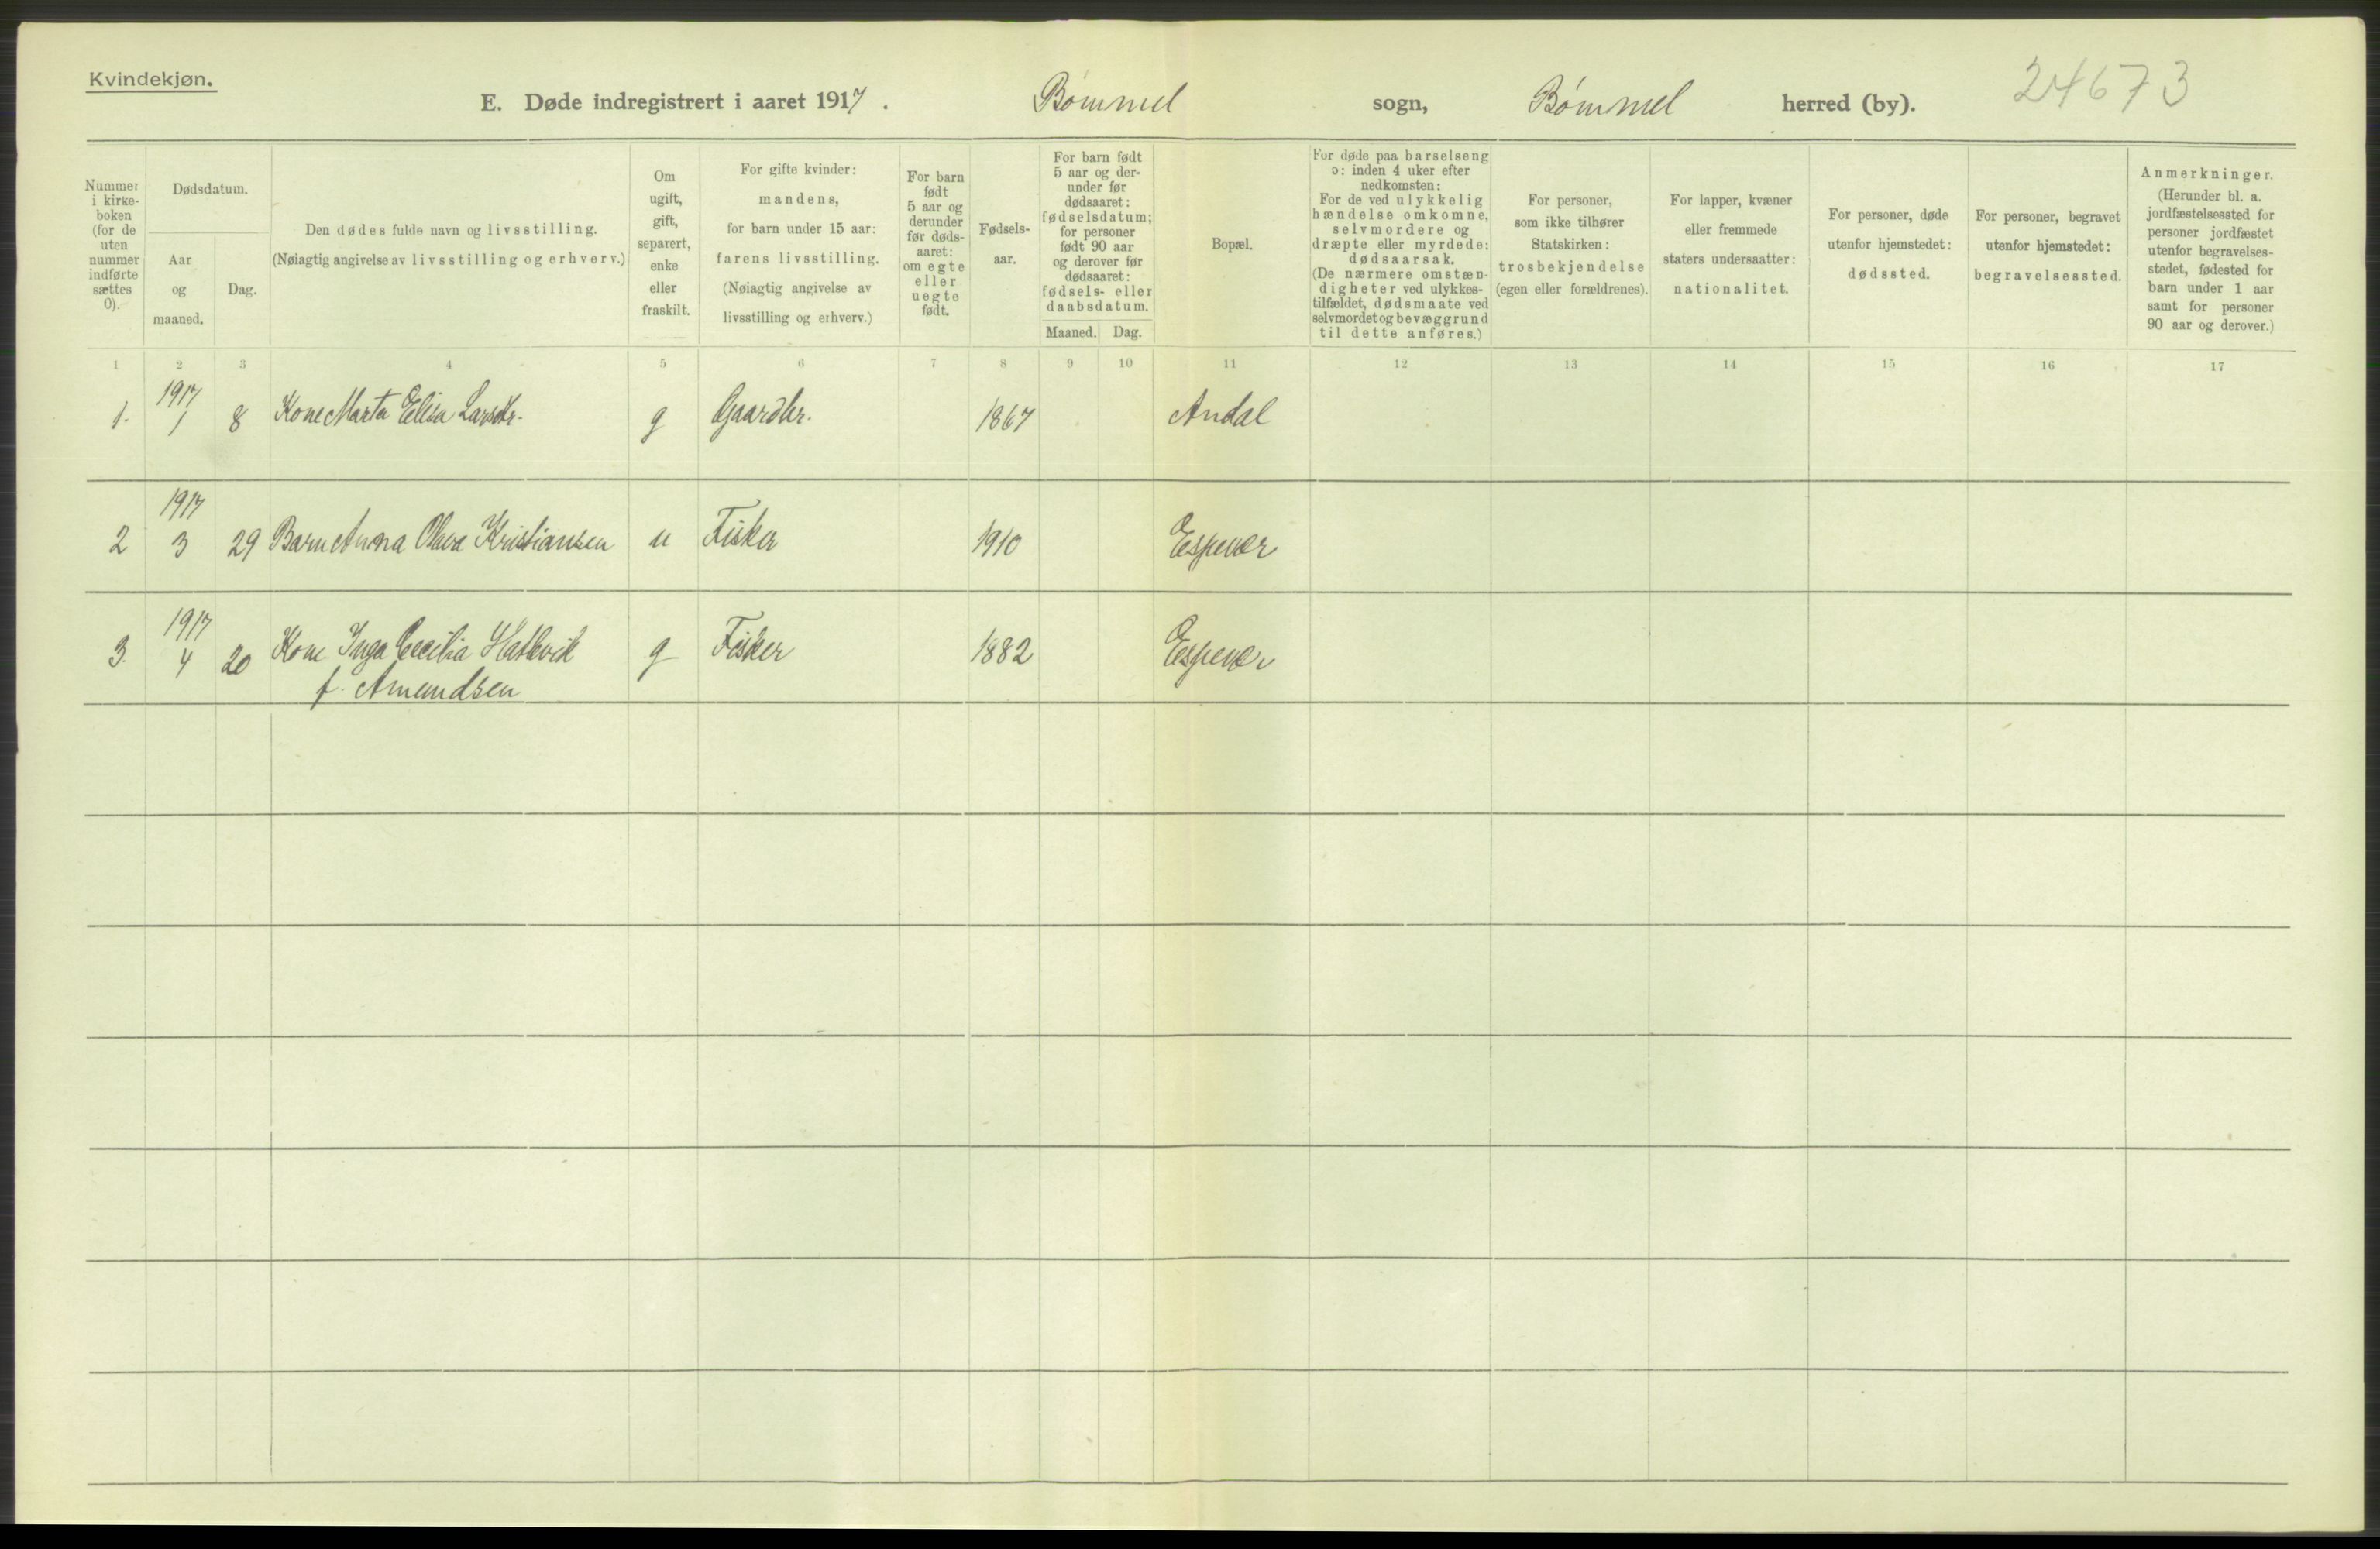 Kvindekjøn.
E. Døde indregistrert i aaret 1917. Bømmel sogn, Bømmel herred (by). 24673
Nummer i kirke-boken (for de uten nummer indførte sættes 0).
Dødsdatum.
Aar og maaned.
Dag.
Den dødes fulde navn og livsstilling.
(Nøiagtig angivelse av livsstilling og erhverv.)
Om ugift, gift, separert, enke eller fraskilt.
For gifte kvinder:
mandens,
for barn under 15 aar:
farens livsstilling.
(Nøiagtig angivelse av
livsstilling og erhverv.)
For barn født 5 aar og derunder før døds-aaret: om egte eller uegte født.
Fødsels-aar.
For barn født
5 aar og der-
under før
dødsaaret:
fødselsdatum;
for personer
født 90 aar
og derover før
dødsaaret:
fødsels- eller
daabsdatum.
Maaned. Dag.
Bopæl.
For døde paa barselseng
ɔ: inden 4 uker efter
nedkomsten:
For de ved ulykkelig
hændelse omkomne,
selvmordere og
dræpte eller myrdede:
dødsaarsak.
(De nærmere omstæn-
digheter ved ulykkes-
tilfældet, dødsmaate ved
selvmordet og bevæggrund
til dette anføres.)
For personer,
som ikke tilhører
Statskirken:
trosbekjendelse
(egen eller forældrenes).
For lapper, kvæner
eller fremmede
staters undersaatter:
nationalitet.
For personer, døde
utenfor hjemstedet:
dødssted.
For personer, begravet
utenfor hjemstedet:
begravelsessted.
Anmerkninger.
(Herunder bl. a.
jordfæstelsessted for
personer jordfæstet
utenfor begravelses-
stedet, fødested for
barn under 1 aar
samt for personer
90 aar og derover.)
1 2 3 4 5 6 7 8 9 10 11 12 13 14 15 16 17
1917
1. 1 8 Kone Marta Elisa Larsdtr. g Gaardbr. 1867 Andal
1917
2 3 29 Barn Anna Olava Kristiansen u Fisker 1910 Espevær
1917
3. 4 20 Kone Inga Cecilia Hatlevik g Fisker 1882 Espevær
f. Amundsen